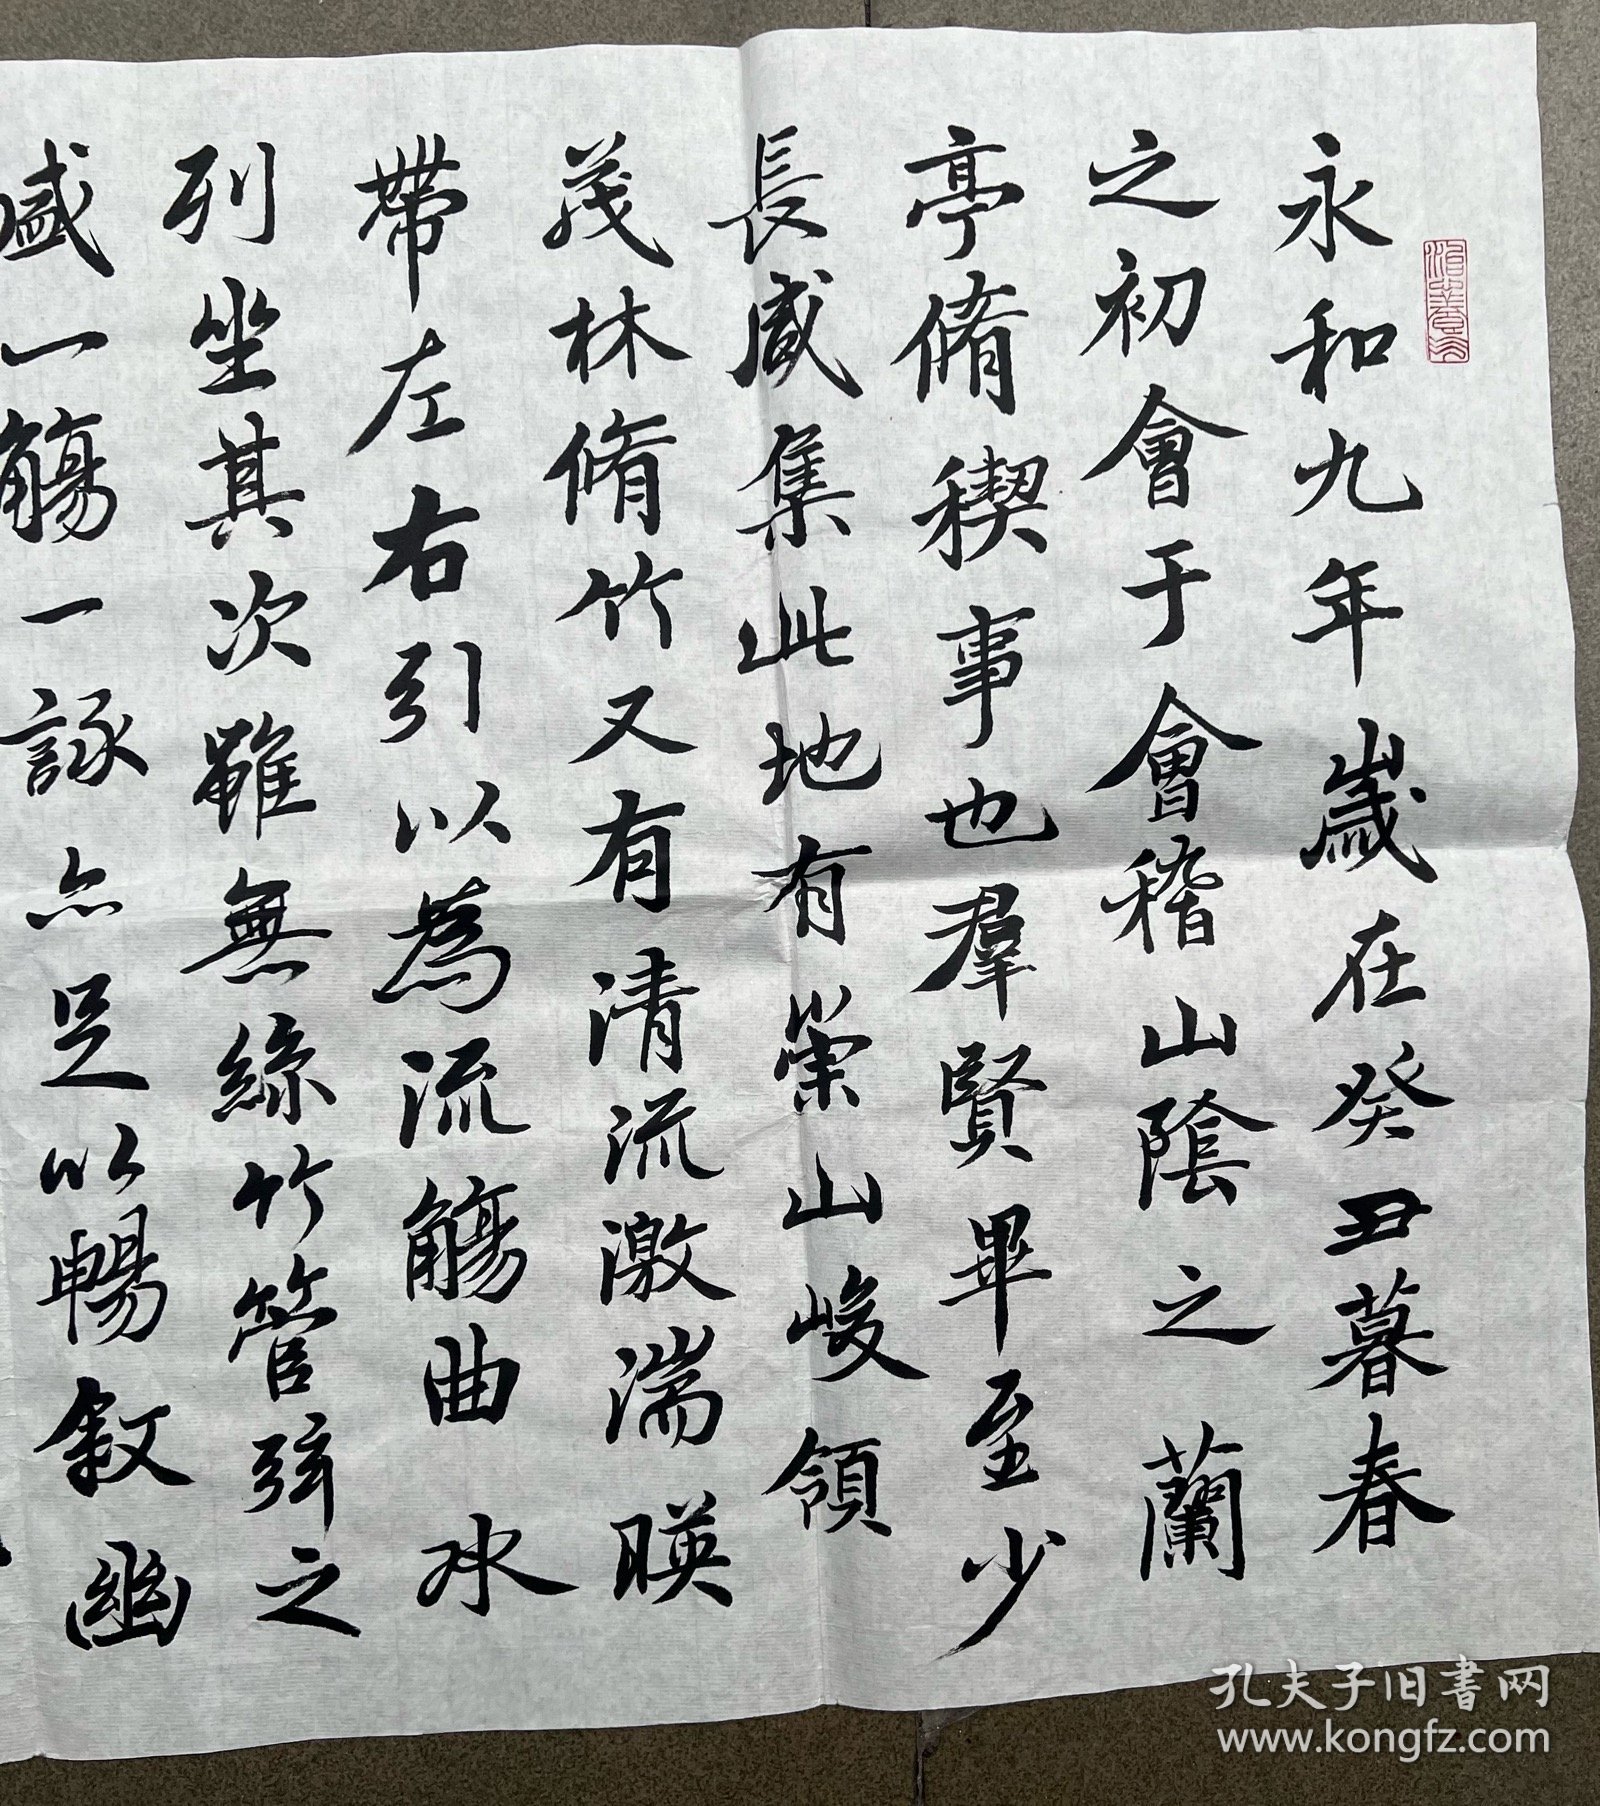 永和九年歲在癸丑暮春
之初會于會稽山陰之蘭
亭脩稧事也羣賢畢至少
長咸集此地有崇山峻領
茂林脩竹又有清流激湍暎
帶左右引以為流觴曲水
列坐其次雖無絲竹管弦之
盛一觴一詠亦足以暢敘幽
孔夫子旧書网
www.kongfz.com